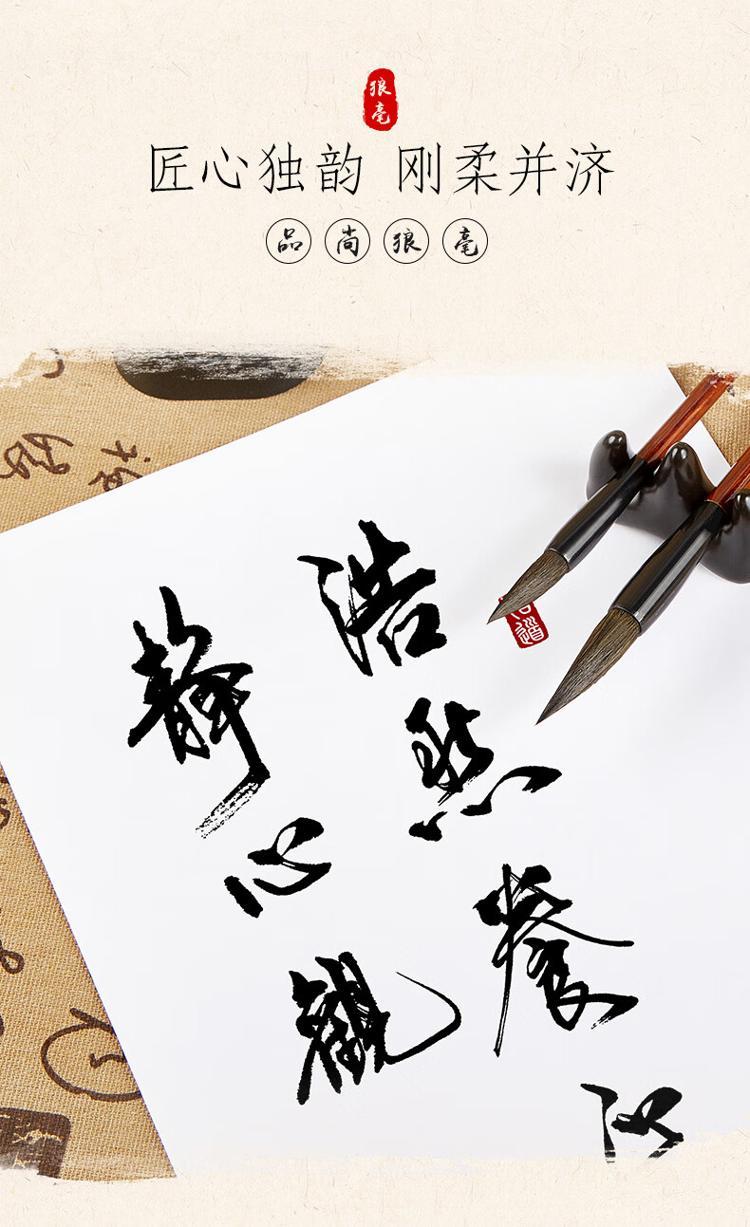 狼毫
匠心独韵 刚柔并济
品尚狼毫
浩然養心
静心觀